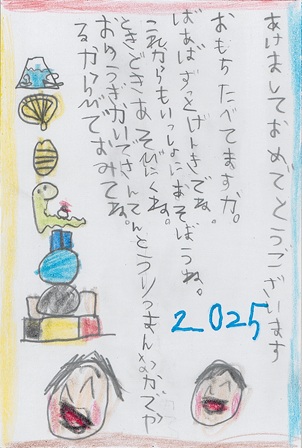 あけましておめでとうございます
おもちたべてますか。
ばあばずっとげんきでね。
これからもいっしょにあそぼうね。
ときどきあそびにくるね。
おゆうぎかいでさんてんとうりつまんながでてや
るからみておみてね。
2025